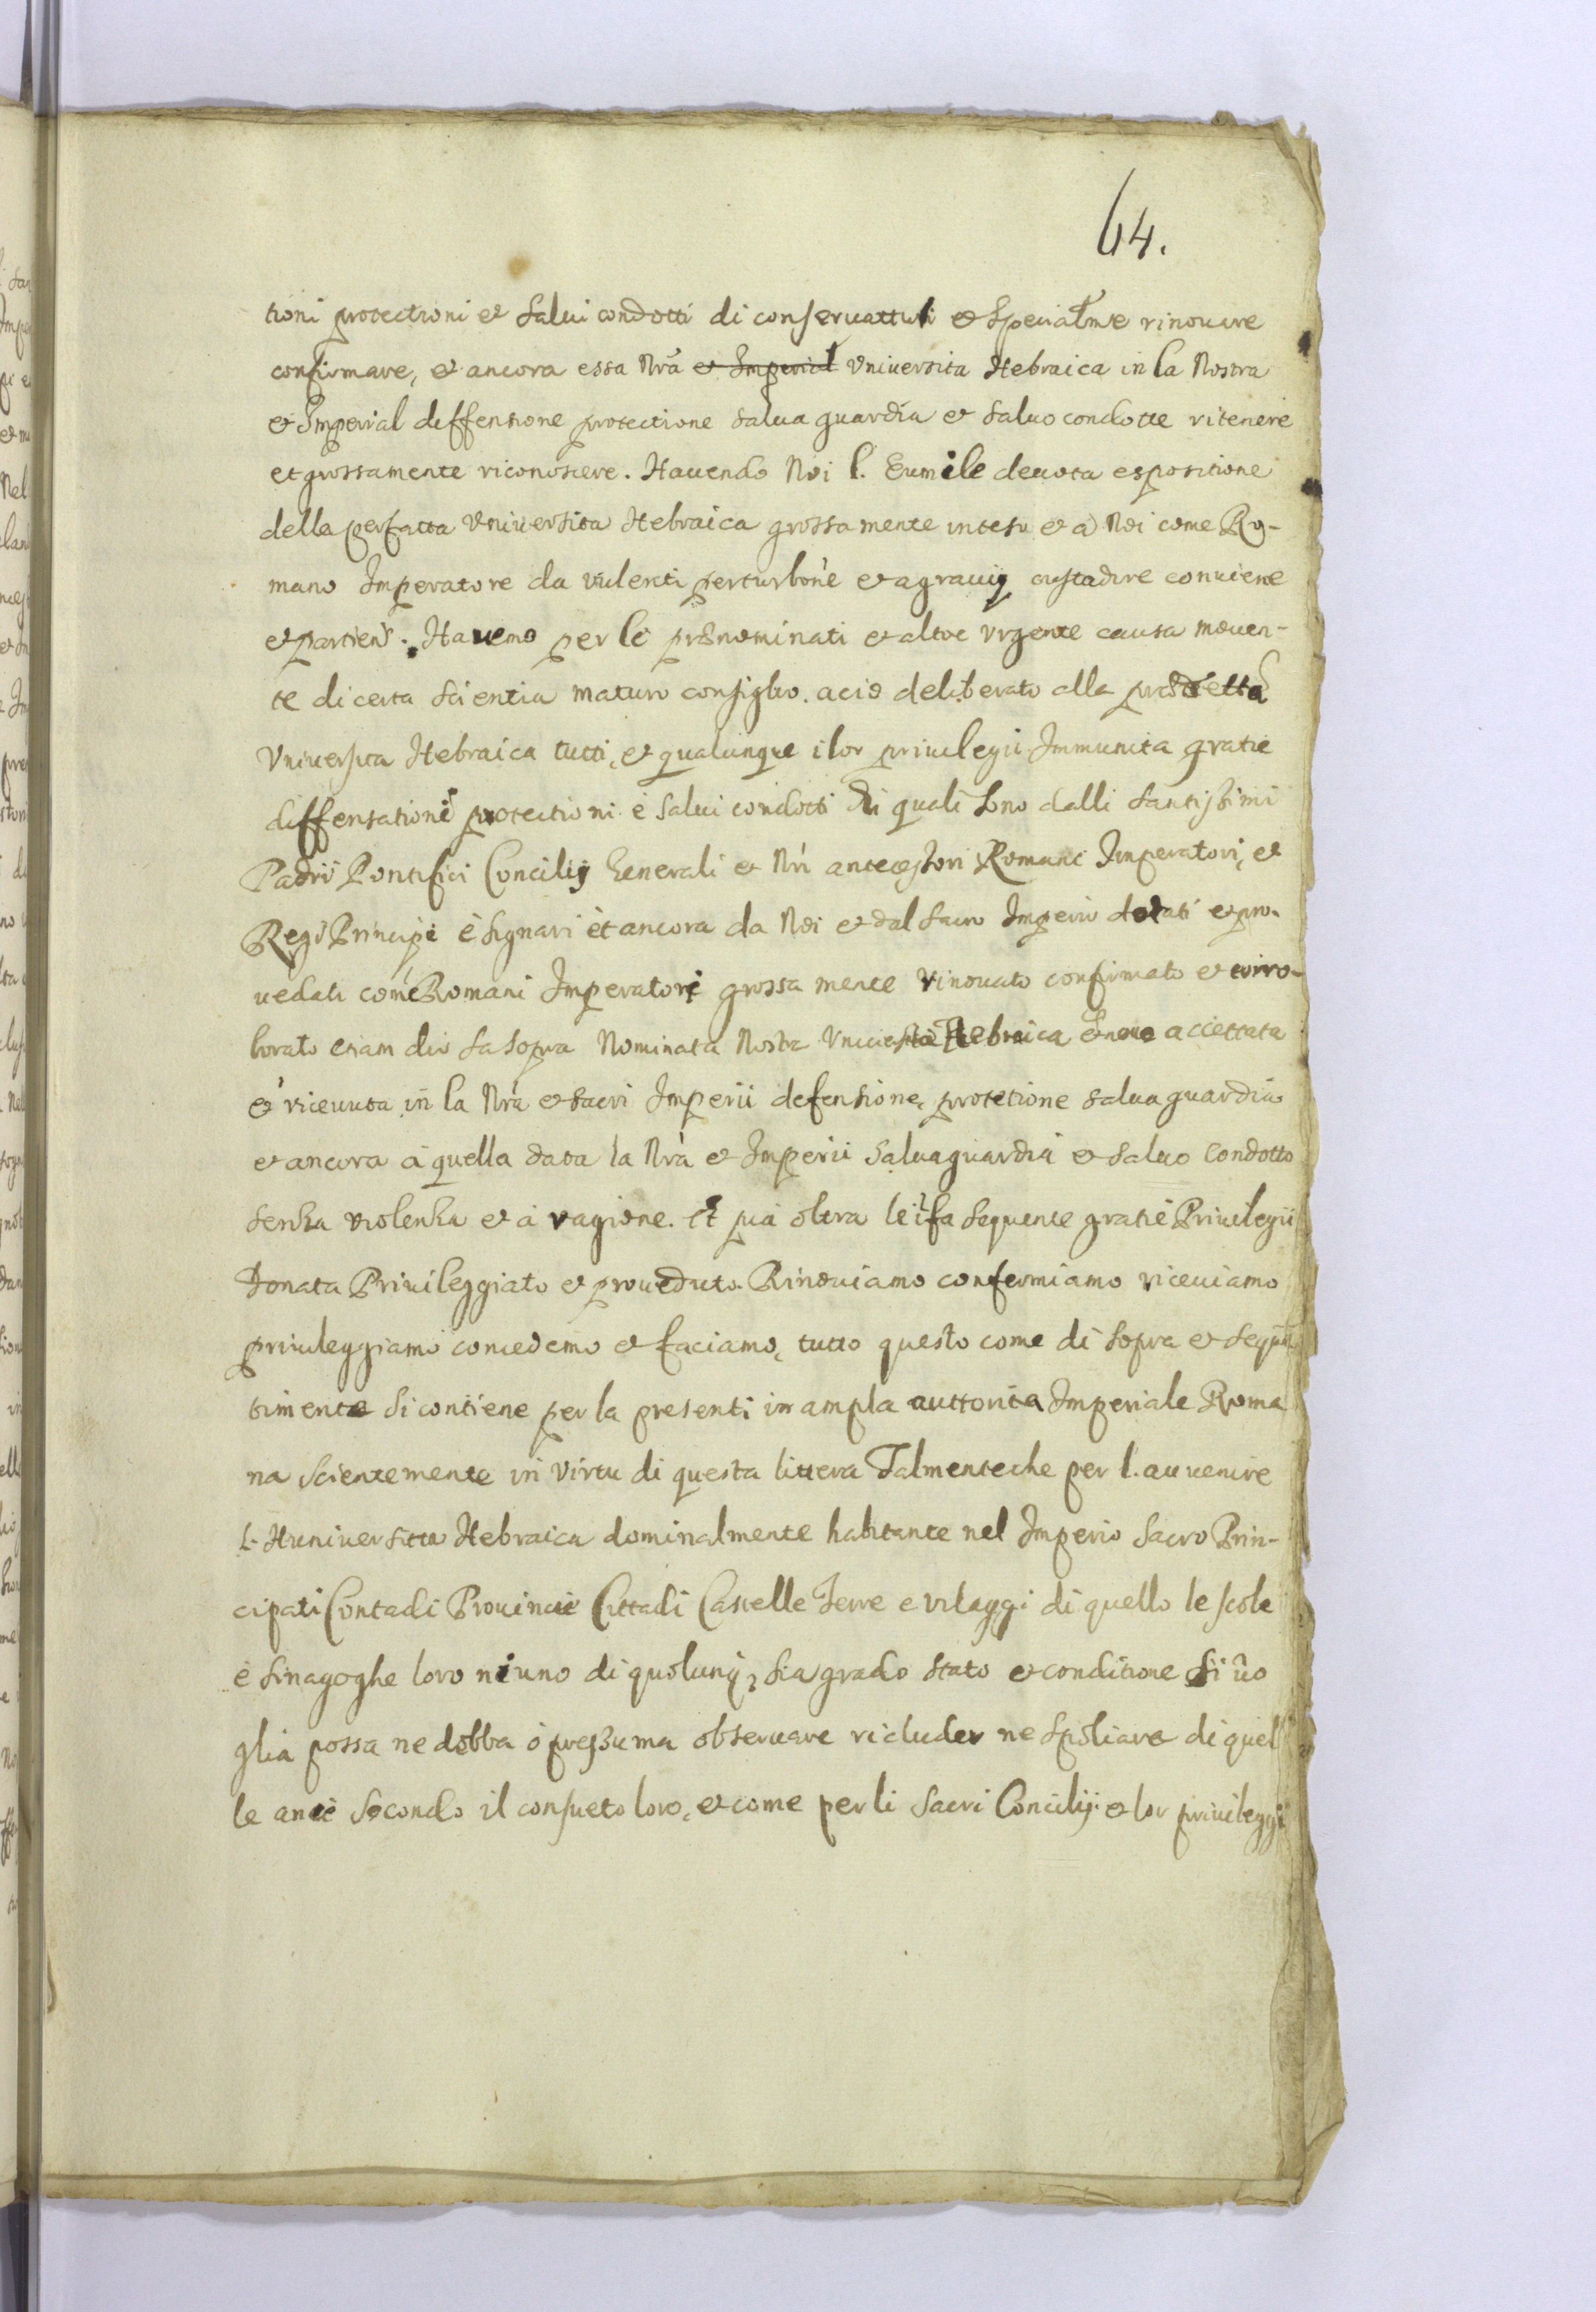 64.
tioni protectioni et salui condotti di conseruattuli et specialmte rinouere
confirmare, et ancora essa Nrã et Imperial Vniuersita Hebraica in la Nostra
et Imperial deffensione protectione salua guardia et saluo condotte ritenere
et grossamente riconoscere. Hauendo Noi l. Eumile deuota espositione
della perfatta Vniuersita Hebraica grossamente intesa et a Noi come Ro-
mano Imperatore da viulenti perturbone et agrauij custadire conuiene
et partiens. Hauemo per le prenominati et altre vrgente causa mouen-
te di certa scientia maturo consiglio. acio deliberato alla predetta
Vniuersita Hebraica tutti, et qualunque i lor priuilegii Immunita gratie
diffensationi protectioni è salui condotti di quali sono dalli santissimi
Padrii Pontifici Concilij Generali et Nri antecessori Romani Imperatori, et
Regi Principi è signari èt ancora da Noi et dal sacro Imperio dotati et pro-
uedati come Romani Imperatori grossa mente rinouato confirmato et corro-
borato etiam dio la sopra Nominata Nostra Vniuersita Hebraica accettata
et riceuuta in la Nrà et sacri Imperii defensione, protetione salua guardia
et ancora a quella data la Nrà et Imperii saluaguardia et saluo condotto
senza violenza et a ragione. et più oltra le sequente gratie Priuilegii
Donata Priuileggiato et proueduto. Rinouiamo confermiamo riceuiamo
priuileggiamo concedemo et faciamo, tutto questo come di sopra et sequen
timente si contiene per la presenti in ampla auttorita Imperiale Roma
na scientemente in virtu di questa littera Talmente che per l. auuenire
L. Huniuersitta Hebraica dominalmente habitante nel Imperio Sacro Prin-
cipati Contadi Prouincie Cittadi Castelle Terre e vilaggi di quello le scole
è sinagoghe loro niuno di qualunq; sia grado stato et conditione si uo
glia possa ne debba ò presuma obseruare ricluder ne spoliare di quel
le anci secondo il consueto loro, et come per li sacri Concilij et lor priuileggi